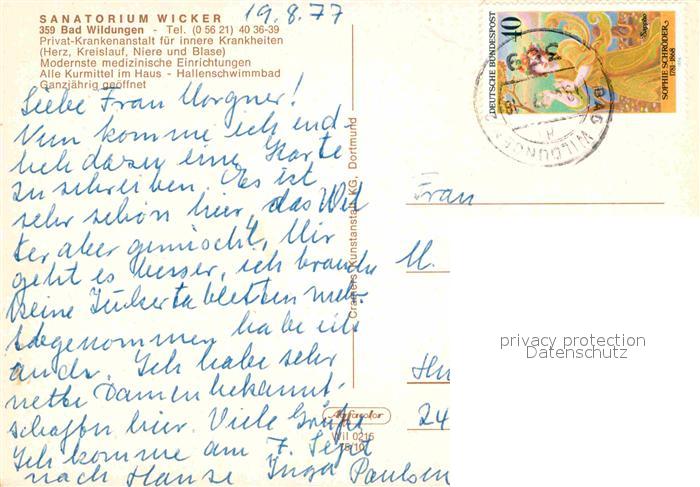 19.8.77
SANATORIUM WICKER
359 Bad Wildungen - Tel. (0 56 21) 40 36-39
Privat-Krankenanstalt für innere Krankheiten
(Herz, Kreislauf, Niere und Blase)
Modernste medizinische Einrichtungen
Alle Kurmittel im Haus - Hallenschwimmbad
Ganzjährig geöffnet
Liebe Frau Morgner!
Nun komme ich end-
lich dazu eine Karte
zu schreiben. Es ist
sehr schön hier, das Wet
ter aber gemischt. Mir
geht es besser, ich brauche
keine Zuckertabletten mehr
abgenommen habe ich
auch. Ich habe sehr
nette Damenbekannt-
schaften hier. Viele Grüße
Ich komme am 7. Sept
nach Hause Inga Paulsen
Cramers Kunstanstalt KG, Dortmund
Agfacolor
Wil 0215
DEUTSCHE BUNDESPOST
40
Sappho
SOPHIE SCHRÖDER
1781-1868
BAD WILDUNGEN
Frau
M.
24
privacy protection
Datenschutz